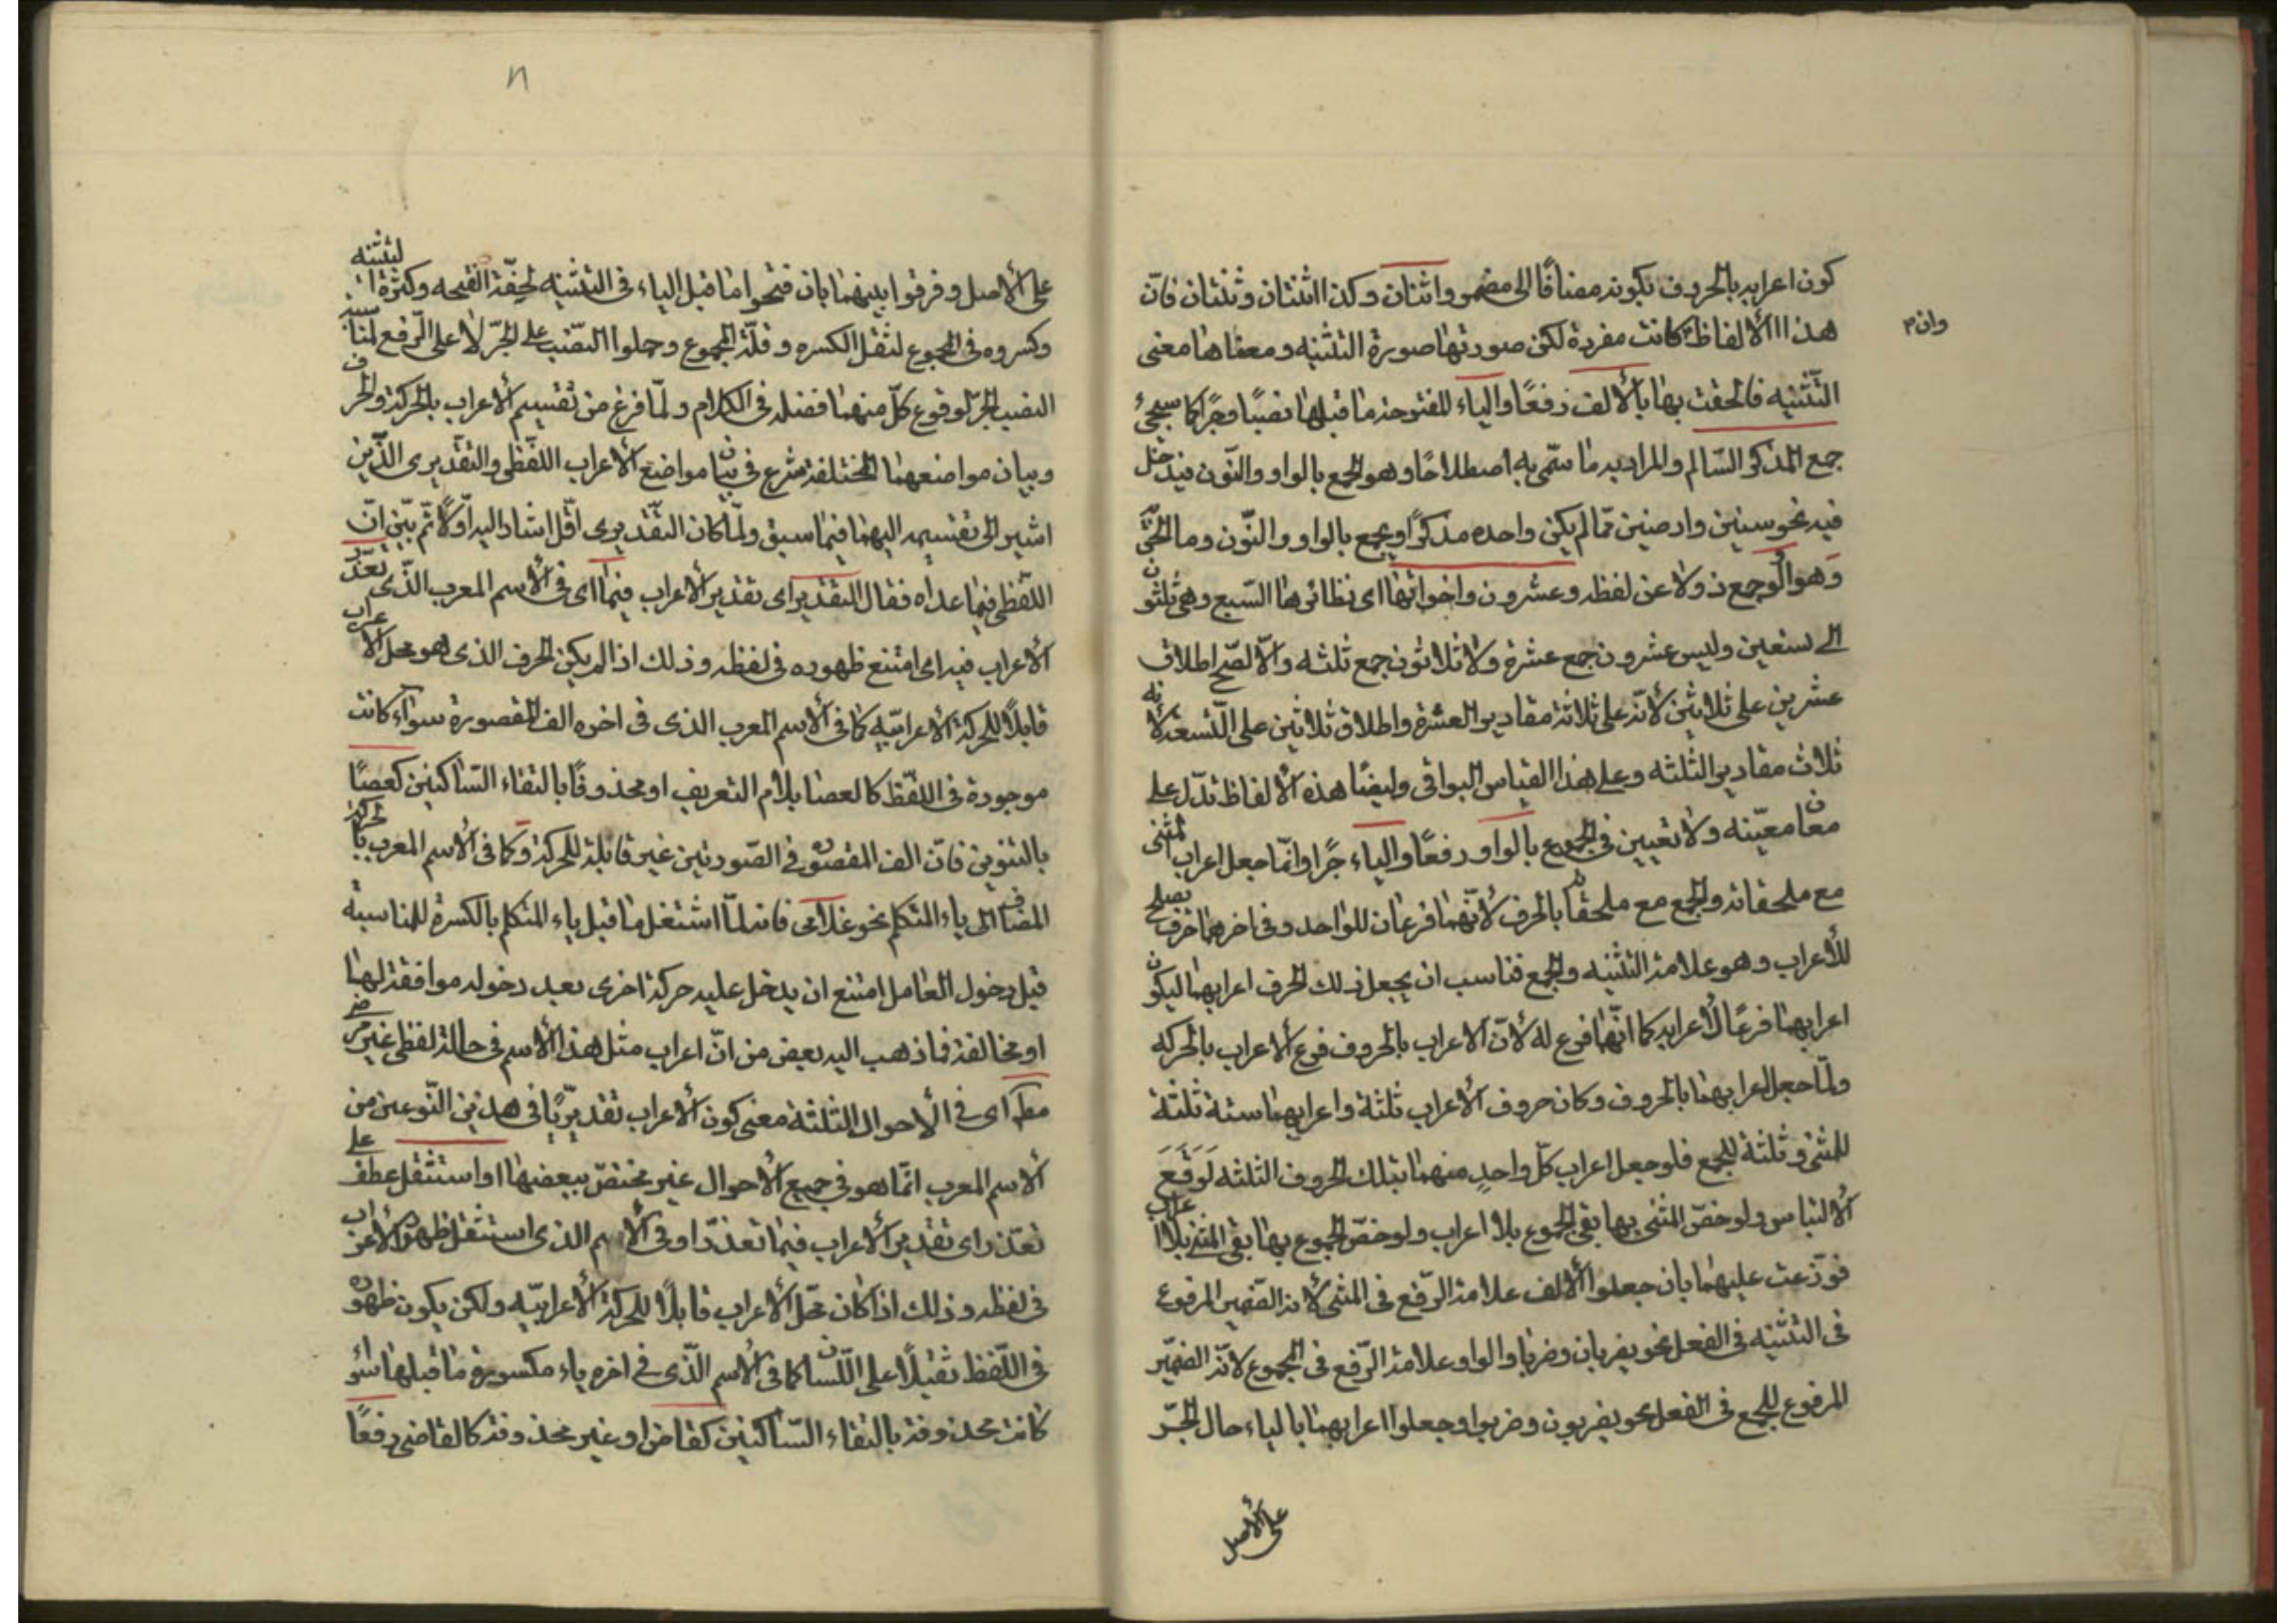 كون اعرابه بالحروف بكونه مضافًا الى مضمر واثنان وكذا اثنتان وثنتان فانّ
وان
هذه الألفاظ كانت مفردة لكن صورتها صورة التثنيه ومعناها معنى
التّثنيه فالحقت بها بالألف رفعًا والياء المفتوحة ما قبلها نصبًا وجرًا كما سيجئ
جمع المذكر السّالم والمراد به ما سمّى به اصطلاحًا وهو الجمع بالواو والنّون فيدخل
فيه نحو سنين وارضين ممّا لم يكن واحده مذكرًا ويجمع بالواو والنّون وما الحق
وهو الو جمع ذو لا عن لفظه وعشرون واخواتها اى نظائرها السّبع وهى ثلثون
الى تسعين وليس عشرون جمع عشرة ولا ثلاثون جمع ثلثه والّا لصحّ اطلاق
عشرين على ثلاثين لأنّه على ثلاثة مقادير العشرة واطلاق ثلاثين على التّسعة لانه
ثلاث مقادير الثلثه وعلى هذا القياس البواقى وايضًا هذه الألفاظ تدّل على
معان معيّنه ولا تعيين فى الجموع بالواو رفعًا والياء جرًا وانّما جعل اعراب المثنى
مع ملحقاته والجمع مع ملحقاته بالحرف لأنّهما فرعان للواحد وفى اخرهما حرف يصلح
للأعراب وهو علامة التثنيه والجمع فناسب ان يجعل ذلك الحرف اعرابهما ليكون
اعرابهما فرعًا لأعرابه كما انّهما فرع له لأنّ الاعراب بالحروف فرع الأعراب بالحركه
ولمّا جعل اعرابهما بالحروف وكان حروف الأعراب ثلثة واعرابهما ستة ثلثة
للمثنى وثلثة للجمع فلو جعل اعراب كلّ واحدٍ منهما بتلك الحروف الثلثه لَوَقَعَ
الألتباس ولو خصّ المثنى بها بقى الجموع بلا اعراب ولو خصّ الجموع بها بقى المثنى بلا اعراب
فوزّعت عليهما بان جعلوا الألف علامة الرّفع فى المثنى لأنه الضّمير المرفوع
فى التثنيه فى الفعل نحو يضربان وضربا والواو علامة الرّفع فى الجموع لانّه الضمّير
المرفوع للجمع فى الفعل نحو يضربون وضربوا وجعلوا اعرابهما بالياء حال الجّر
على الأصل
على الأصل وفرقوا بينهما بان فتحوا ما قبل الياء فى التثنيه لخفّة الفتحه وكثرة التثنيه
وكسروه فى الجموع لثقل الكسره وقلّة الجموع وحملوا النصّب على الجّر لا على الرّفع لمناسبة
النصب الجّر لوقوع كلّ منهما فضله فى الكلام ولمّا فرغ من تقسيم الأعراب بالحركة والحرف
وبيان مواضعهما المختلفة شرع فى بيان مواضع الأعراب اللّفظى والتقديرى الذّين
اشير الى تقسيمه اليهما فيما سبق ولمّا كان التقّديرى اقّل اشار اليه اوّلًا ثمّ بيّن انّ
اللّفظى فيما عداه فقال التقدير اى تقدير الأعراب فيما اى فى الأسم المعرب الذّى تعذّر
الأعراب فيه اى امتنع ظهوره فى لفظه وذلك اذا لم يكن الحرف الذى هو محل الاعراب
قابلًا للحركة الأعرابيّه كما فى الأسم المعرب الذى فى اخره الف المقصورة سواء كانت
موجودة فى اللّفظ كالعصا بلام التعريف او محذوفًا بالتقاء السّاكنين كعصًا
بالتنوين فانّ الف المقصوره فى الصّورتين غير قابلة للحركة وكما فى الأسم المعرب بالحركة
المضاف الى ياء المتكلم نحو غلامى فانه لمّا اشتغل ما قبل ياء المتكلم بالكسرة للمناسبة
قبل دخول العامل امتنع ان يدخل عليه حركة اخرى بعد دخوله موافقة لها
او مخالفة فما ذهب اليه بعض من انّ اعراب مثل هذا الأسم فى حالة لفظى غير مرضى
مطلقا اى فى الأحوال الثلثة معنى كون الأعراب تقديريًّا فى هذين النّوعين من
الأسم المعرب انّما هو فى جميع الأحوال غير مختصّ ببعضها او استثقل عطف على
تعذّر اى تقدير الأعراب فيما تعذّر او فى الأسم الذى استثقل ظهور الأعراب
فى لفظه وذلك اذا كان محّل الأعراب قابلًا للحركة الأعرابيّه ولكن يكون ظهوره
فى اللّفظ ثقيلًا على اللّسان كما فى الأسم الذّى فى اخره ياء مكسورة ما قبلها سواء
كانت محذوفة بالتقاء السّاكنين كقاض او غير محذوفة كالقاضى رفعًا